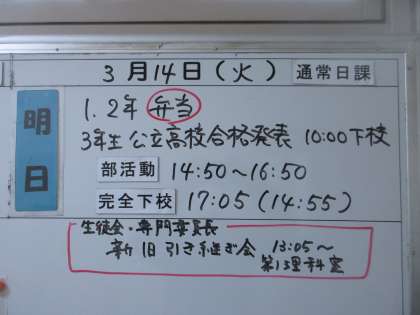 3月14日（火） 通常日課
明日
1.2年 弁当
3年生 公立高校合格発表 10:00下校
部活動 14:50~16:50
完全下校 17:05(14:55)
生徒会・専門委員長
新旧引き継ぎ会 13:05~
第1理科室